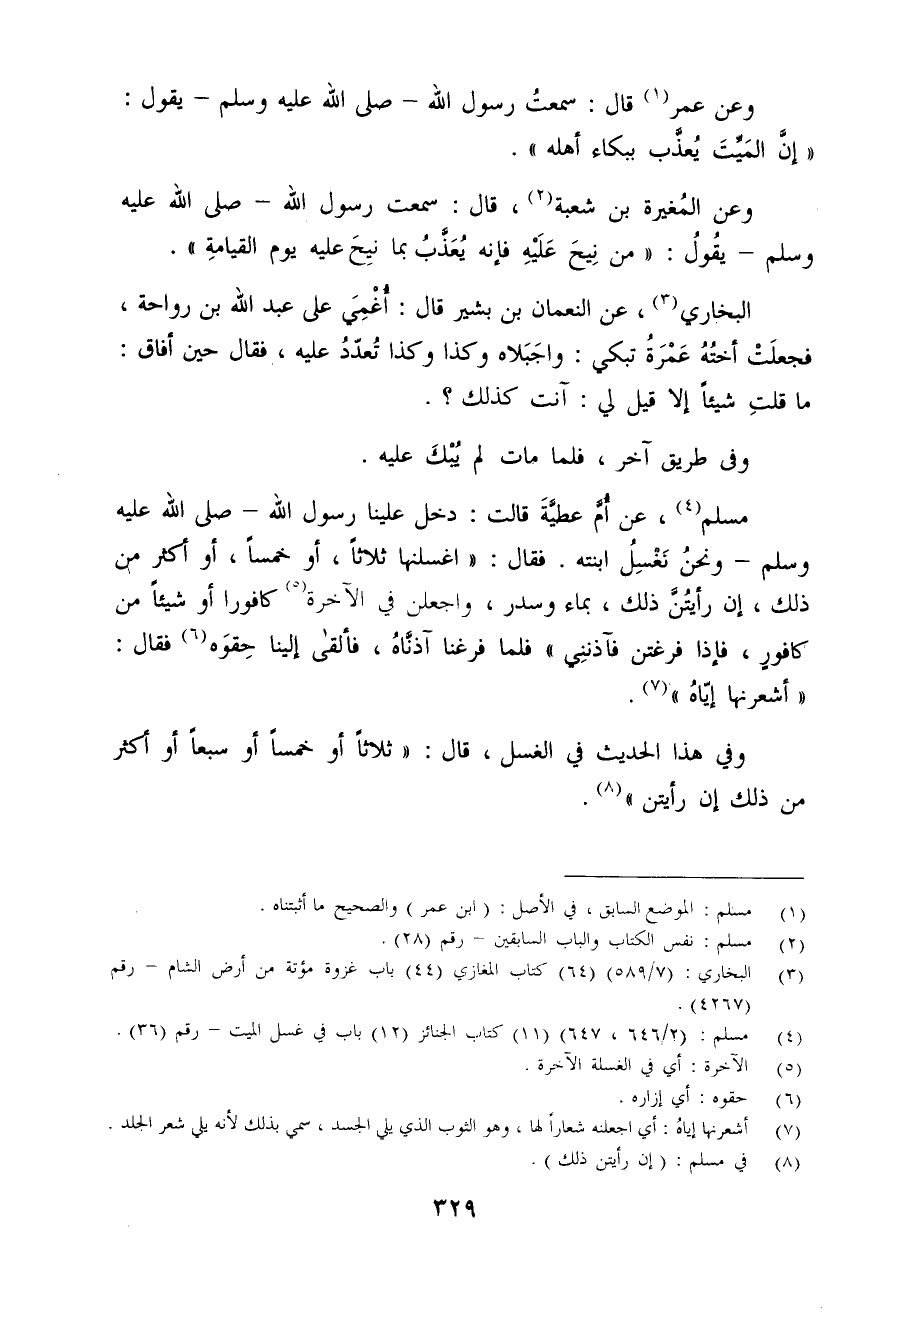 وعن عمر(١) قال : سمعتُ رسول الله – صلى الله عليه وسلم – يقول :
« إنَّ المَيِّتَ يُعذَّب ببكاء أهله » .
وعن المُغيرة بن شعبة(٢) ، قال : سمعت رسول الله – صلى الله عليه
وسلم – يقُولُ : « من نِيحَ عَلَيْهِ فإنه يُعَذَّبُ بما نيحَ عليه يوم القيامةِ » .
البخاري(٣) ، عن النعمان بن بشير قال : أُغْمِيَ على عبد الله بن رواحة ،
فجعلَتْ أختُهُ عَمْرَةُ تبكي : واجَبَلاه وكذا وكذا تُعدّدُ عليه ، فقال حين أفاق :
ما قلتِ شيئاً إلا قيل لي : آنت كذلك ؟ .
وفى طريق آخر ، فلما مات لم يُبْكَ عليه .
مسلم(٤) ، عن أُمّ عطيَّةَ قالت : دخل علينا رسول الله – صلى الله عليه
وسلم – ونحنُ نَغْسِلُ ابنته . فقال : « اغسلنها ثلاثاً ، أو خمساً ، أو أكثر من
ذلك ، إن رأيتُنَّ ذلك ، بماء وسدر ، واجعلن في الآخرة(٥) كافورا أو شيئاً من
كافورٍ ، فإذا فرغتن فآذنني » فلما فرغنا آذنَّاهُ ، فألقىٰ إلينا حِقوَه(٦) فقال :
« أشعرنها إيّاهُ »(٧) .
وفي هذا الحديث في الغسل ، قال : « ثلاثاً أو خمساً أو سبعاً أو أكثر
من ذلك إن رأيتن »(٨) .
(١) مسلم : الموضع السابق ، في الأصل : ( ابن عمر ) والصحيح ما أثبتناه .
(٢) مسلم : نفس الكتاب والباب السابقين – رقم (٢٨) .
(٣) البخاري : (٥٨٩/٧) (٦٤) كتاب المغازي (٤٤) باب غزوة مؤتة من أرض الشام – رقم
(٤٢٦٧) .
(٤) مسلم : (٦٤٦/٢ ، ٦٤٧) (١١) كتاب الجنائز (١٢) باب في غسل الميت – رقم (٣٦) .
(٥) الآخرة : أي في الغسلة الآخرة .
(٦) حقوه : أي إزاره .
(٧) أشعرنها إياهُ : أي اجعلنه شعاراً لها ، وهو الثوب الذي يلي الجسد ، سمي بذلك لأنه يلي شعر الجلد .
(٨) في مسلم : ( إن رأيتن ذلك ) .
٣٢٩